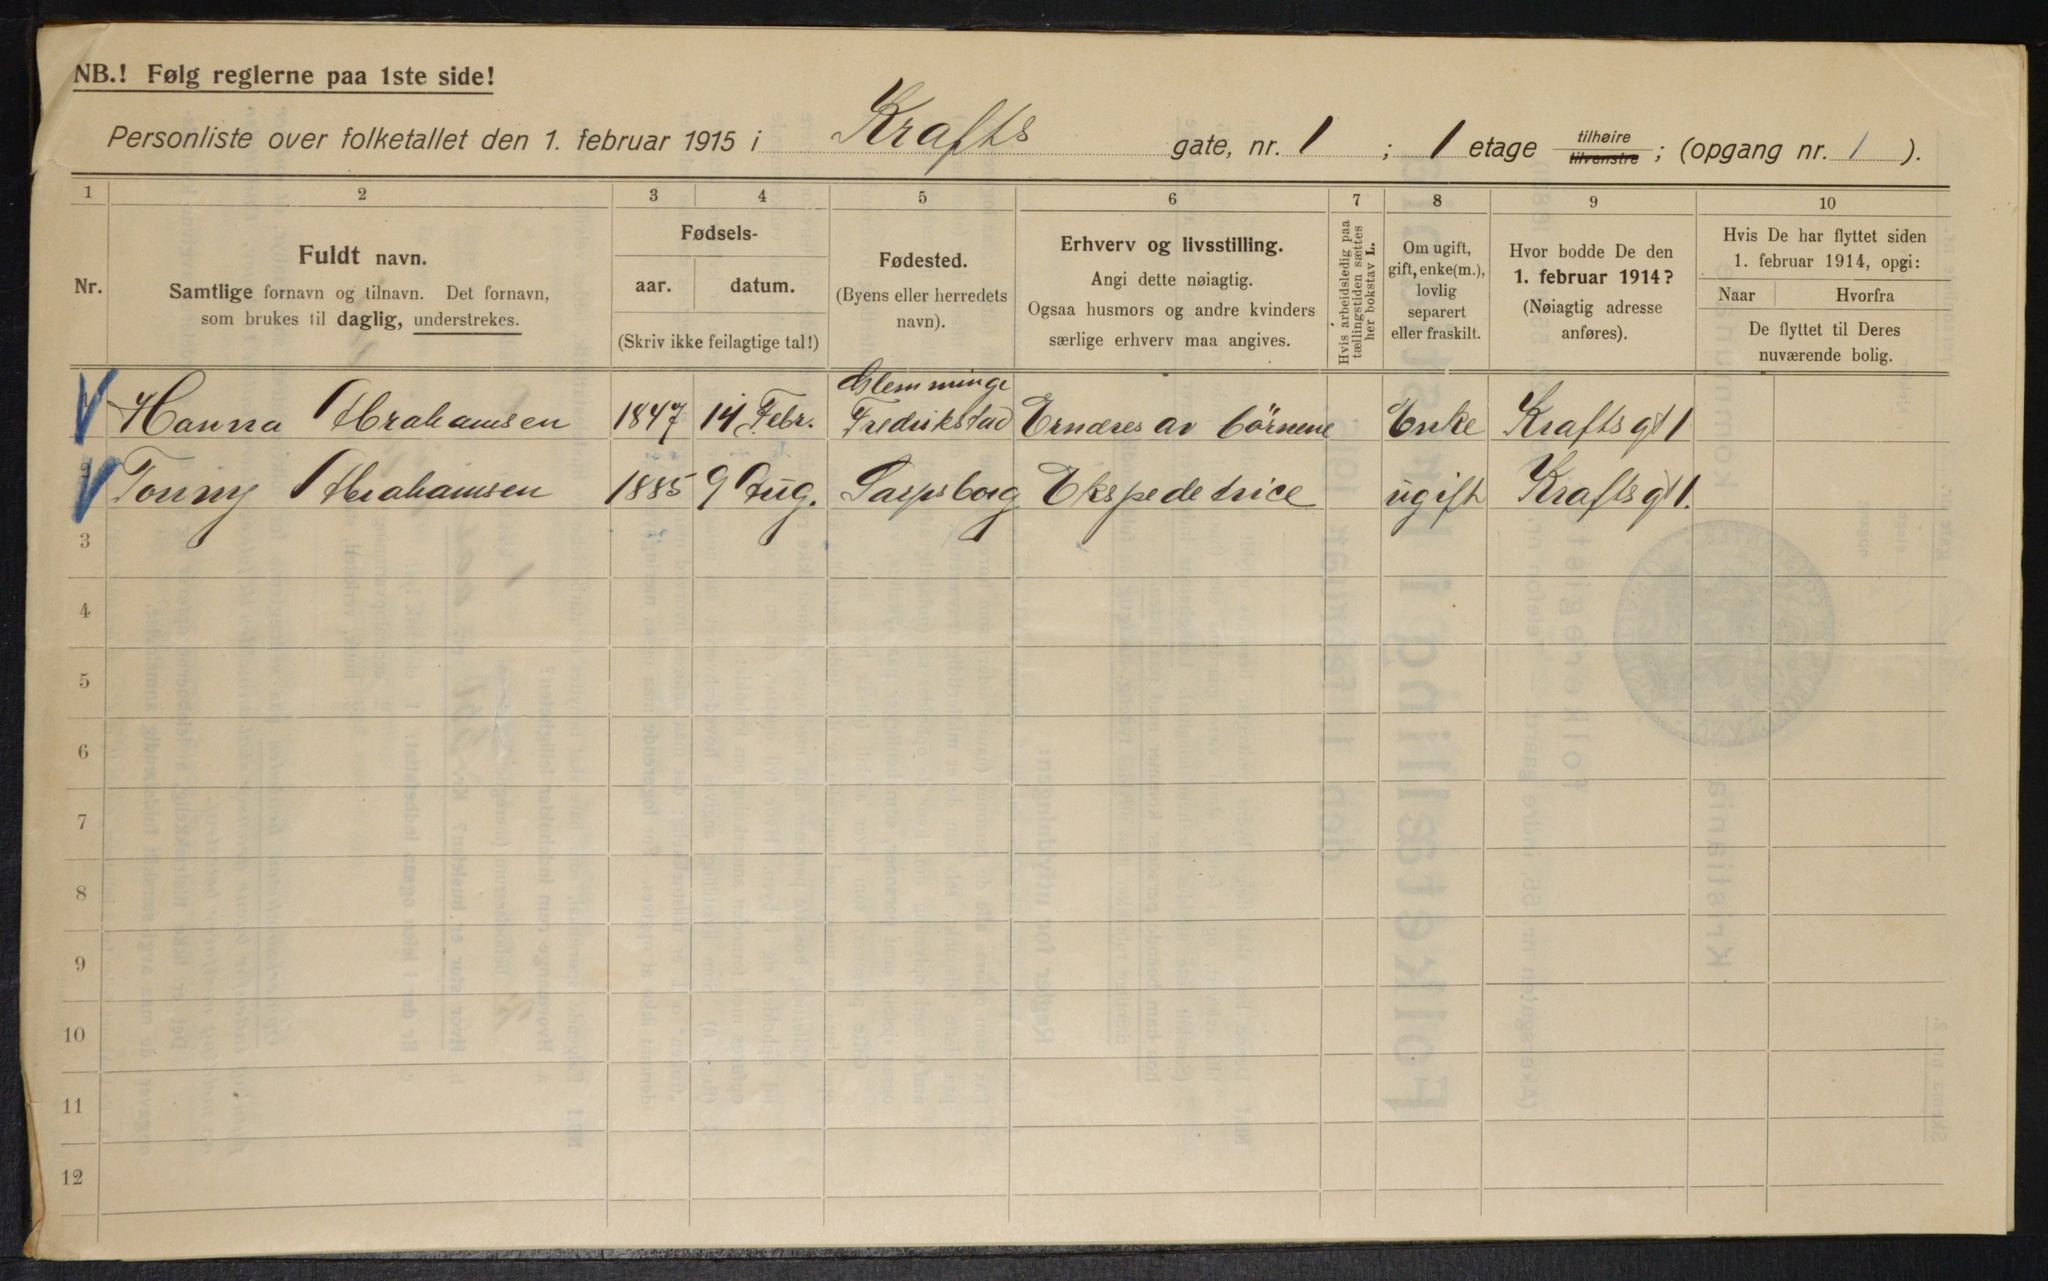 NB.! Følg reglerne paa 1ste side!
Personliste over folketallet den 1. februar 1915 i Krafts gate, nr. 1 ; 1 etage tilhøire tilvenstre ; (opgang nr. 1 ).
1 2 3 4 5 6 7 8 9 10
Nr.
Fuldt navn.
Samtlige fornavn og tilnavn. Det fornavn,
som brukes til daglig, understrekes.
Fødsels-
aar. datum.
(Skriv ikke feilagtige tal!)
Fødested.
(Byens eller herredets
navn).
Erhverv og livsstilling.
Angi dette nøiagtig.
Ogsaa husmors og andre kvinders
særlige erhverv maa angives.
Hvis arbeidsledig paa
tællingstiden sættes
her bokstav L.
Om ugift,
gift, enke(m.),
lovlig
separert
eller fraskilt.
Hvor bodde De den
1. februar 1914?
(Nøiagtig adresse
anføres).
Hvis De har flyttet siden
1. februar 1914, opgi:
Naar Hvorfra
De flyttet til Deres
nuværende bolig.
Glemminge
Hanna Abrahamsen 1847 14 Febr. Fredrikstad Ernæres av börnene Enke Krafts gt 1
Tonny Abrahamsen 1885 9 Aug. Sarpsborg Ekspedetrice ugift Krafts gt 1.
3
4
5
6
7
8
9
10
11
12